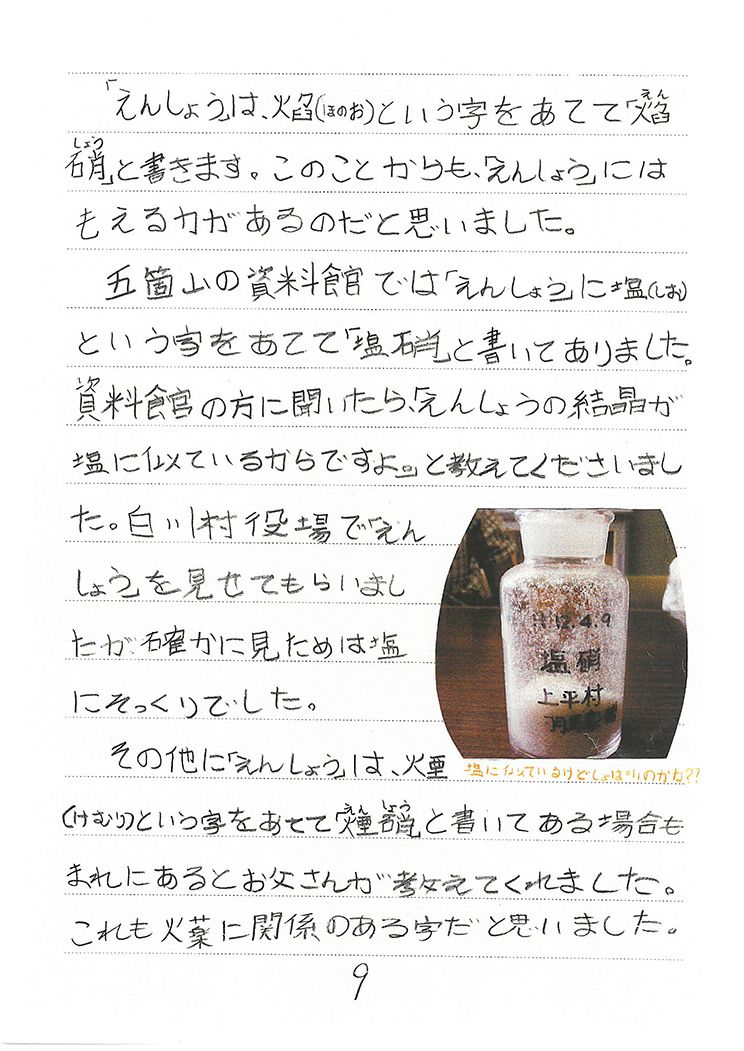 「えんしょう」は、焰(ほのお)という字をあてて「焰(えん)
硝(しょう)」と書きます。このことからも、「えんしょう」には
もえる力があるのだと思いました。
五箇山の資料館では「えんしょう」に塩(しお)
という字をあてて「塩硝」と書いてありました。
資料館の方に聞いたら、「えんしょうの結晶が
塩に似ているからですよ。」と教えてくださいまし
た。白川村役場で「えん
しょう」を見せてもらいまし
たが、確かに見ためは塩
にそっくりでした。
12.4.9
塩硝
上平村
塩に似ているけどしょぱいのかな??
その他に「えんしょう」は、煙
(けむり)という字をあてて「煙(えん)硝(しょう)」と書いてある場合も
まれにあるとお父さんが教えてくれました。
これも火薬に関係のある字だと思いました。
9